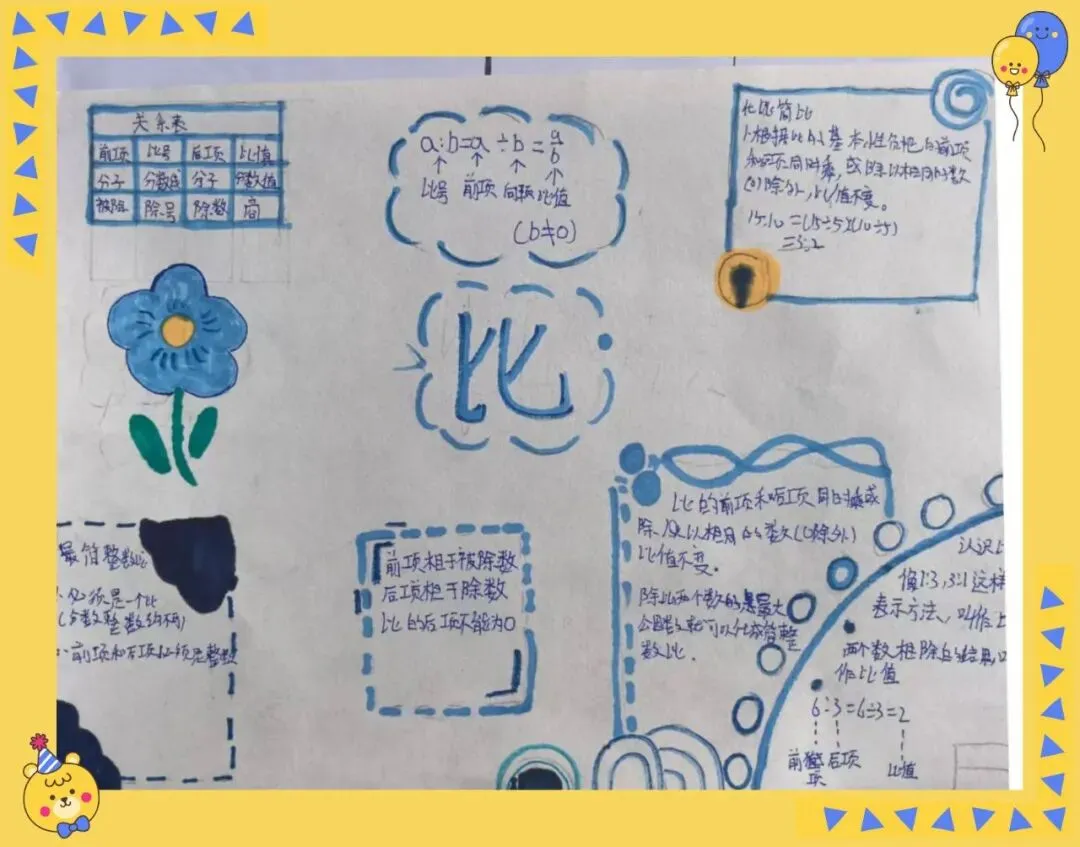 关系表
前项 比号 后项 比值
分子 分数线 分子 分数值
被除 除号 除数 商
a:b=a÷b=a/b
比号 前项 后项 比值
(b≠0)
化简比
1.根据比的基本性质把比的前项
和后项同时乘，或除以相同的数
(0)除外，比值不变。
15:10=(15÷5):(10÷5)
=3:2
比
最简整数比
是一个比
(分数整数均不可)
前项和后项必须是整数
前项相于被除数
后项相于除数
比的后项不能为0
比的前项和后项同时乘或
除以相同的数(0除外)
比值不变。
除比两个数的是最大
公因数就可以化成简整
数比.
认识比
像1:3,3:1这样
表示方法、叫作比
两个数相除的结果叫
作比值
6:3=6÷3=2
前项 后项 比值